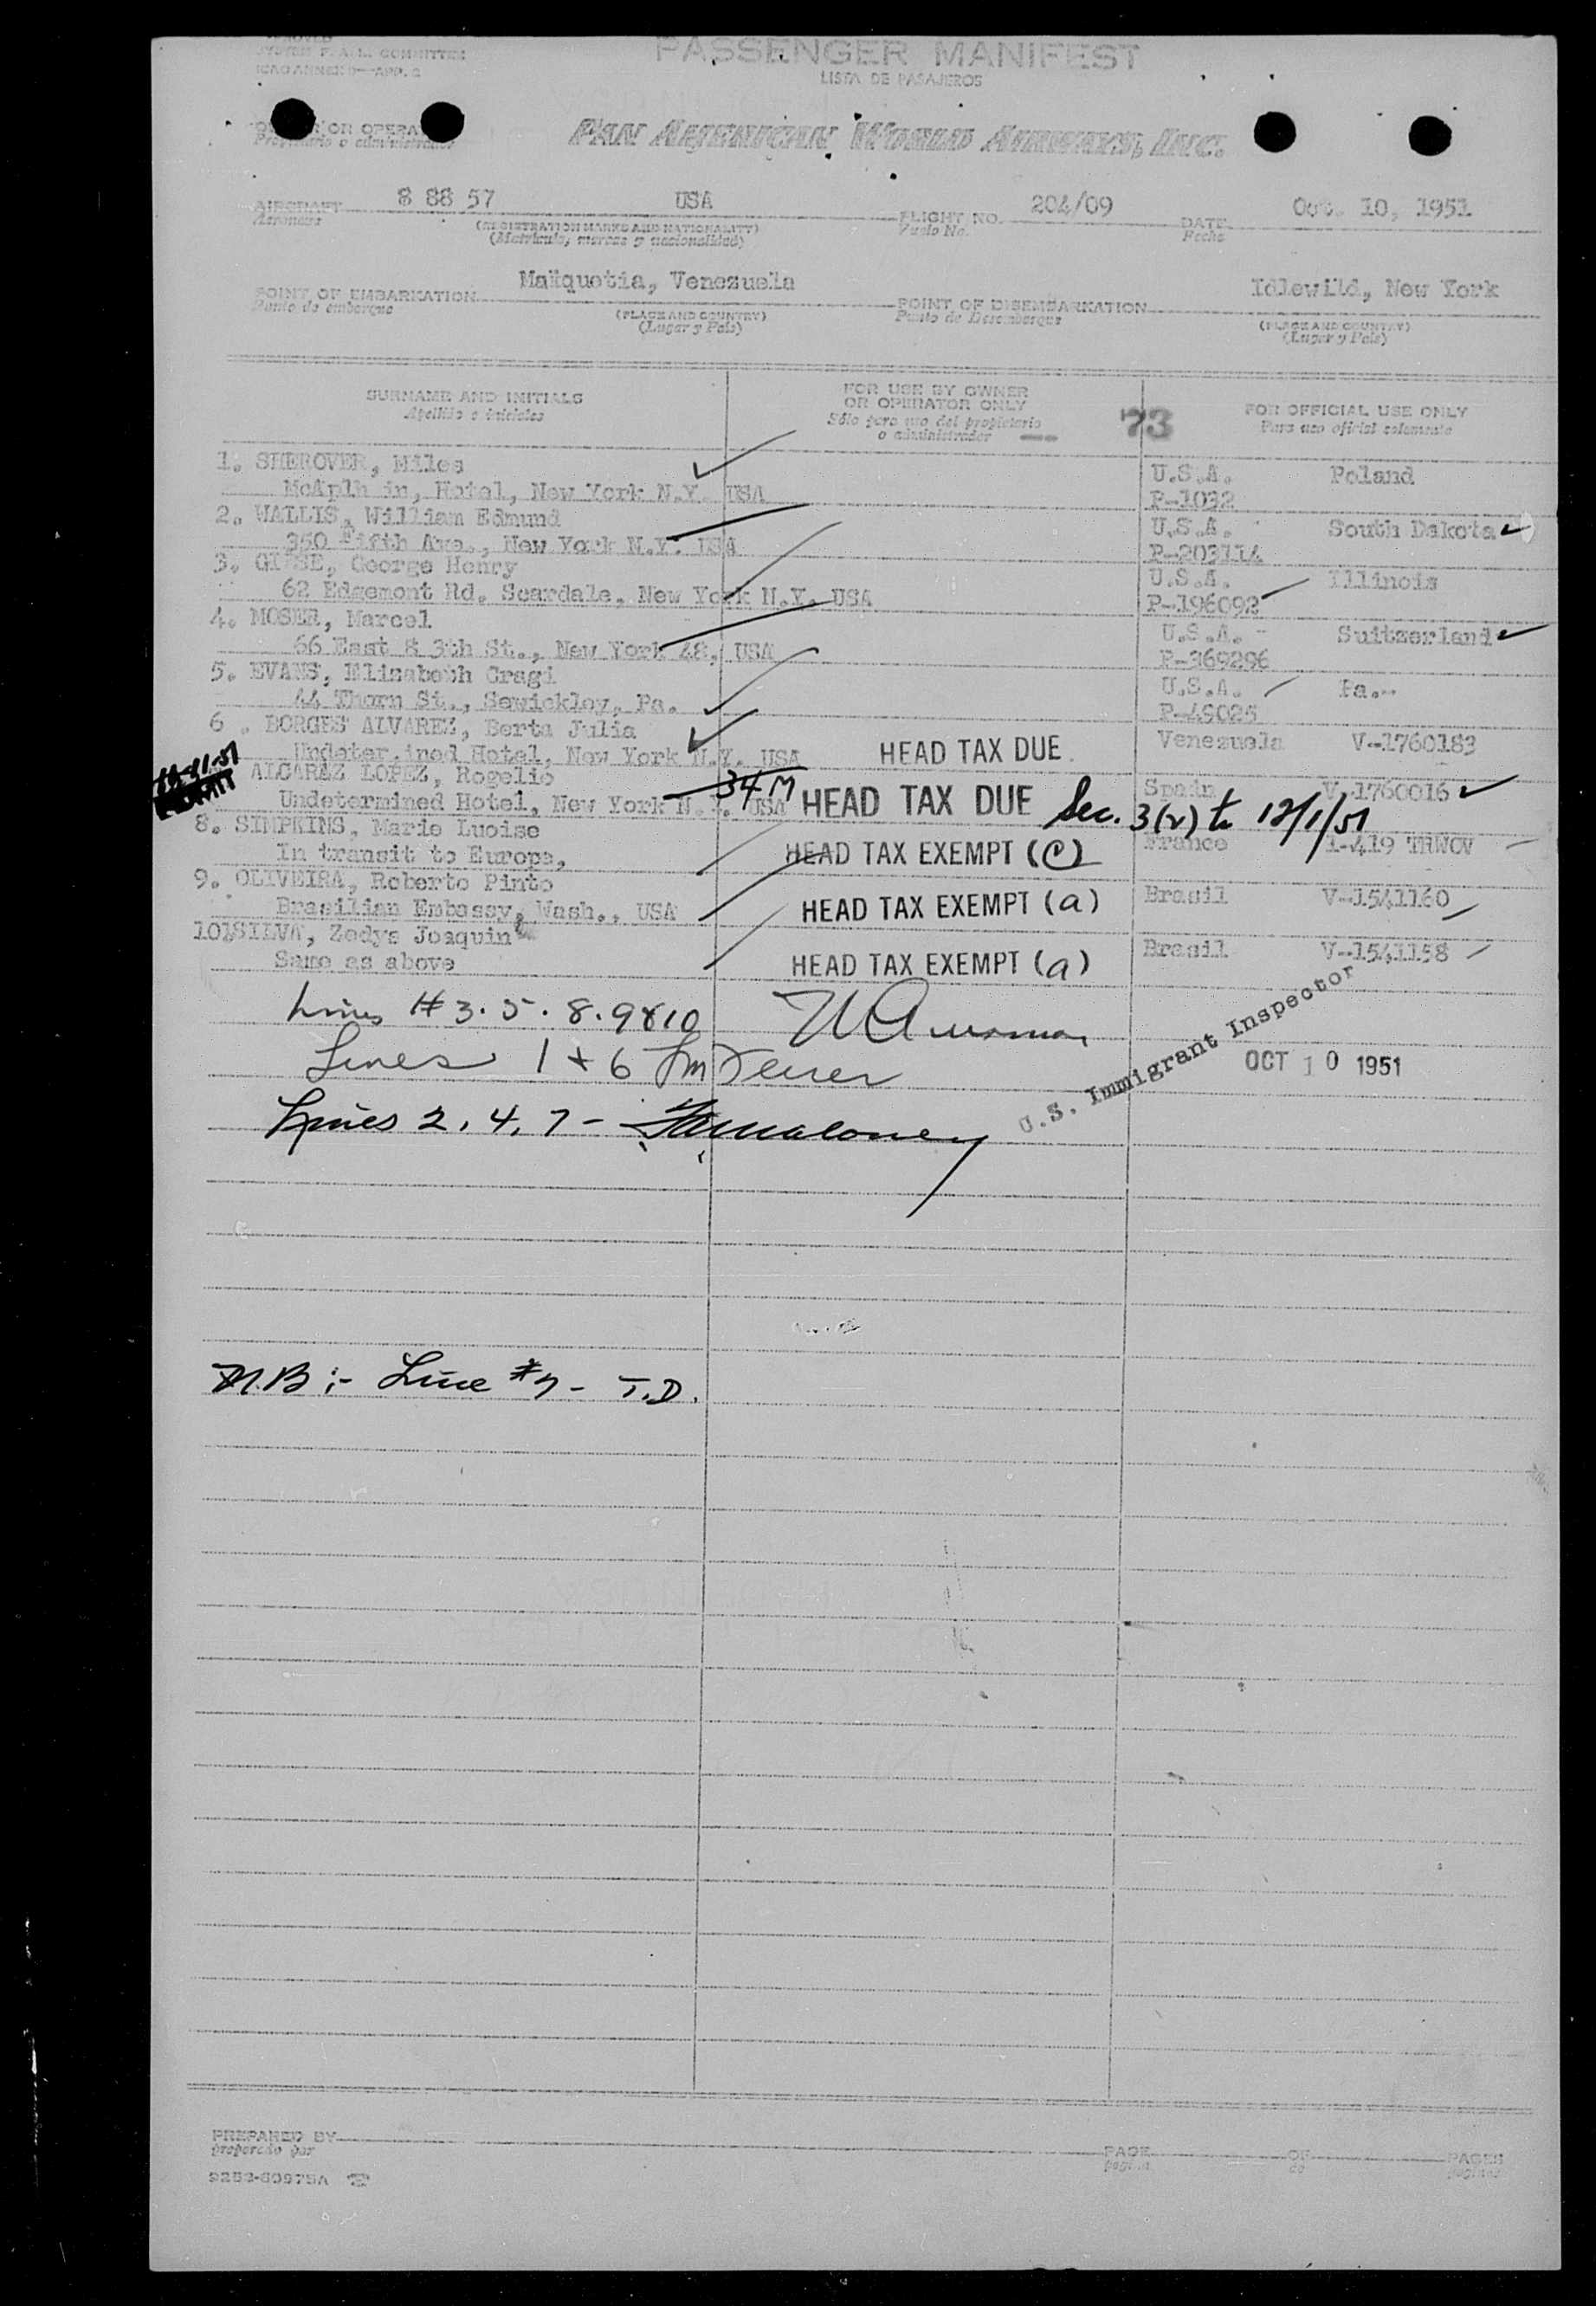 APPROVED
SYSTEM F. A. L. COMMITTEE
ICAO ANNEX 9—APP. 2
PASSENGER MANIFEST
LISTA DE PASAJEROS
OR OPERA
Propietario o administrador
PAN AMERICAN WORLD AIRWAYS, INC.
AIRCRAFT 8 88 57 USA FLIGHT NO. 204/09 DATE Oct. 10, 1951
Aeronave (REGISTRATION MARKS AND NATIONALITY) Vuelo No. Fecha
(Matricula, marcas y nacionalidad)
POINT OF EMBARKATION Maiquetia, Venezuela POINT OF DISEMBARKATION Idlewild, New York
Punto de embarque (PLACE AND COUNTRY) Punto de Desembarque (PLACE AND COUNTRY)
(Lugar y País) (Lugar y País)
SURNAME AND INITIALS FOR USE BY OWNER OR OPERATOR ONLY 73 FOR OFFICIAL USE ONLY
Apellido e iniciales Sólo para uso del propietario o administrador Para uso oficial solamente
1. SHEROVER, Miles U.S.A. Poland
McAplh in, Hotel, New York N.Y. USA P-1032
2. WALLIS, William Edmund U.S.A. South Dakota
350 Fifth Ave., New York N.Y. USA P-203114
3. GIESE, George Henry U.S.A. Illinois
62 Edgemont Rd. Scardale, New York N.Y. USA P-196092
4. MOSER, Marcel U.S.A. - Suitzerland
66 East 8 3th St., New York 48, USA P-369296
5. EVANS, Elisabeth Cragi U.S.A. Pa.-
44 Thorn St., Sewickley, Pa. P-49025
6 . BORGES ALVAREZ, Berta Julia Venezuela V-1760183
Undeter.ined Hotel, New York N.Y. USA HEAD TAX DUE
ALCARAZ LOPEZ, Rogelio Spain V-1760016
Undetermined Hotel, New York N.Y. USA 34 M HEAD TAX DUE Sec. 3(2) to 12/1/51
8. SIMPKINS, Marie Luoise France 1-419 TRWOV
In transit to Europe, HEAD TAX EXEMPT (C)
9. OLIVEIRA, Roberto Pinto Brasil V-1541160
Brasilian Embassy, Wash., USA HEAD TAX EXEMPT (a)
10lSILVA, Zedys Joaquin Brasil V-1541158
Same as above HEAD TAX EXEMPT (a)
Lines # 3. 5. 8. 9 & 10
Lines 1 + 6
Lines 2, 4, 7 -
U.S. Immigrant Inspector
OCT 10 1951
N.B :- Line #7 - T.D.
PREPARED BY PAGE OF PAGES
preparado por pagina de paginas
9252-60975A